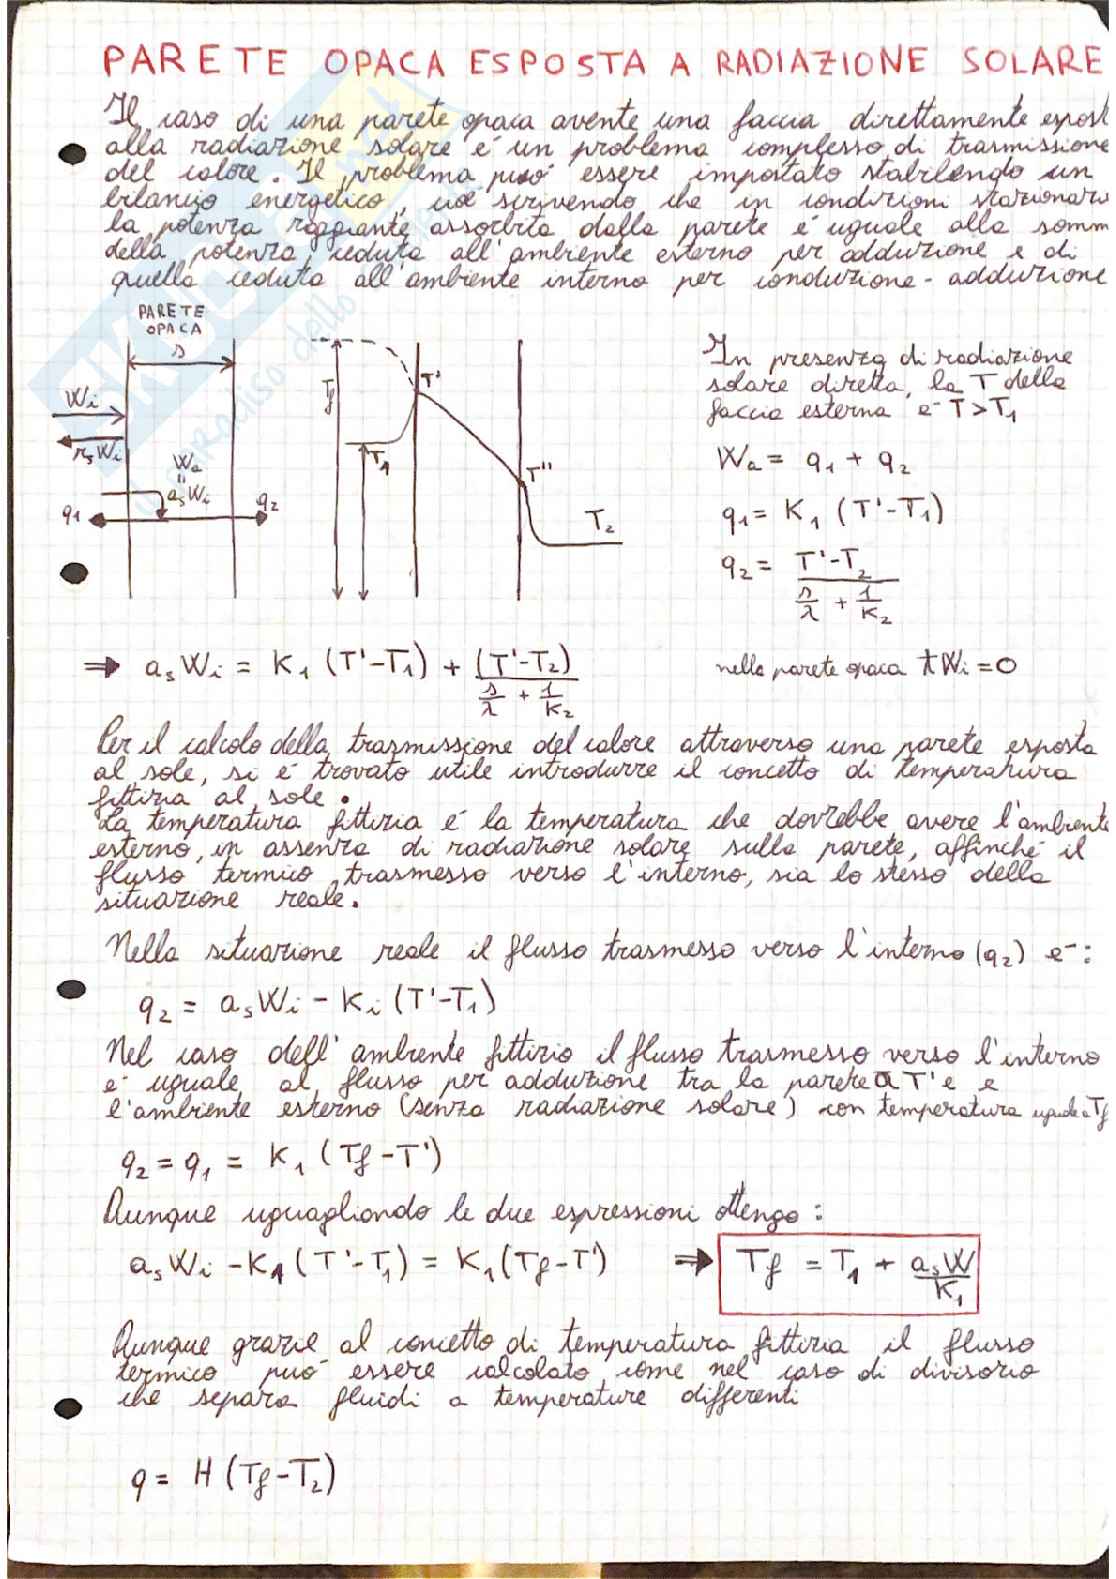 PARETE OPACA ESPOSTA A RADIAZIONE SOLARE
Il caso di una parete opaca avente una faccia direttamente espost
alla radiazione solare e' un problema complesso di trasmissione
del calore. Il problema può essere impostato stabilendo un
bilancio energetico, cioè scrivendo che in condizioni stazionari
la potenza raggiante assorbita dalla parete e' uguale alla somm
della potenza ceduta all'ambiente esterno per adduzione e di
quella ceduta all'ambiente interno per conduzione-adduzione
PARETE
OPACA
s
Wi
rs Wi
Wa
"
as Wi
q1
q2
Tf
T1
T'
T"
T2
In presenza di radiazione
solare diretta, la T della
faccia esterna e' T>T1
Wa = q1 + q2
q1 = K1 (T'-T1)
q2 = (T'-T2) / (s/λ + 1/K2)
⇒ as Wi = K1 (T'-T1) + (T'-T2) / (s/λ + 1/K2)
nella parete opaca tWi = 0
Per il calcolo della trasmissione del calore attraverso una parete esposta
al sole, si e' trovato utile introdurre il concetto di temperatura
fittizia al sole.
La temperatura fittizia e' la temperatura che dovrebbe avere l'ambiente
esterno, in assenza di radiazione solare sulla parete, affinché il
flusso termico trasmesso verso l'interno, sia lo stesso della
situazione reale.
Nella situazione reale il flusso trasmesso verso l'interno (q2) e':
q2 = as Wi - Ki (T'-T1)
Nel caso dell'ambiente fittizio il flusso trasmesso verso l'interno
e' uguale al flusso per adduzione tra la parete a T' e e
l'ambiente esterno (senza radiazione solare) con temperatura uguale a Tf
q2 = q1 = K1 (Tf-T')
Dunque uguagliando le due espressioni ottengo:
as Wi - K1 (T'-T1) = K1 (Tf-T') ⇒ Tf = T1 + as W / K1
Dunque grazie al concetto di temperatura fittizia il flusso
termico può essere calcolato come nel caso di divisorio
che separa fluidi a temperature differenti
q = H (Tf-T2)